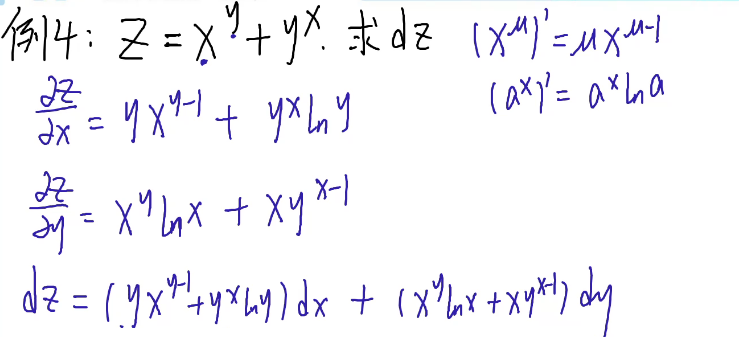 例14: z = x^y + y^x. 求dz (x^μ)' = μx^{μ-1}
(a^x)' = a^x ln a
∂z/∂x = yx^{y-1} + y^x ln y
∂z/∂y = x^y ln x + xy^{x-1}
dz = (yx^{y-1} + y^x ln y) dx + (x^y ln x + xy^{x-1}) dy